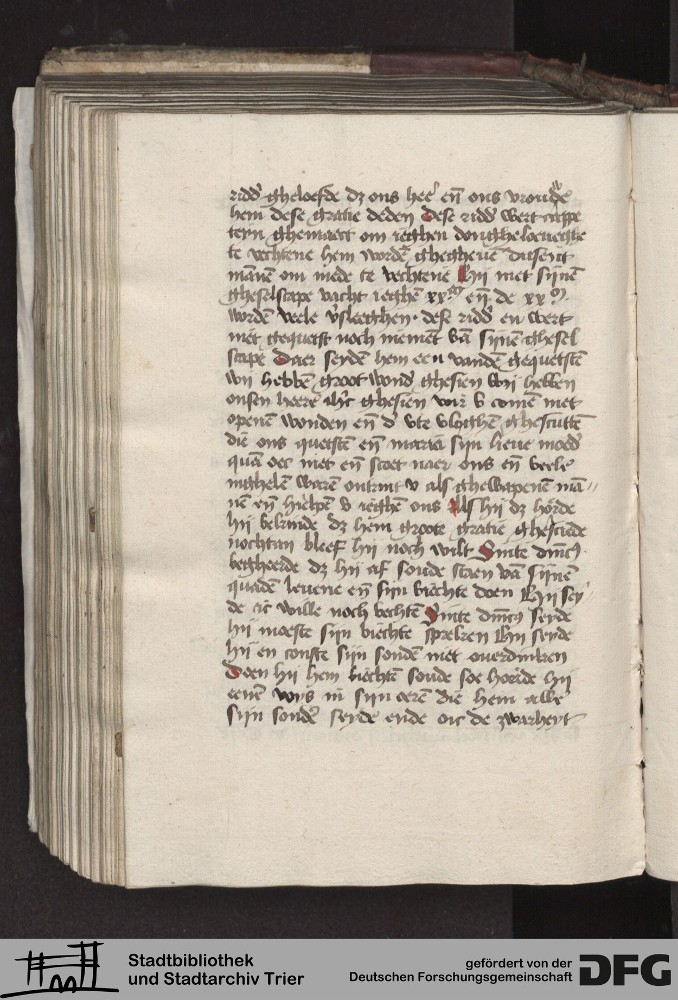 ridd' gheloefde dz ons heē en̄ ons vrouwe
hem dese gratie deden Dese ridd' wert cappe
teyn ghemaect om ieghen donghelouighe
te vechtene hem wordē ghegheuē dusent
mānen om mede te vechtene Hij met sijnē
gheselscape vacht ieghē xx.m en̄ de xx m.
wordē veele v'sleeghen. dese ridd' en wert
niet gequetst noch niemēt vā sijnē ghesel
scape Daer seydē hem een vandē gequetstē
wij hebbē groot wond' ghesien Wij hebben
onsen heere ih'c ghesien voir v comē met
openē wonden en̄ d' vte vloghē ghescutte
die ons quetstē en̄ mariā sijn lieue moed'
quā oec met en̄ scoet naer ons en̄ veele
inghelē warē ontrint v als ghewapenē mā
nē en̄ hielpē v ieghē ons Als hij dz hoorde
hij bekinde dz hem groote gratie ghesciede
nochtan bleef hij noch wilt Sinte dm̄c9
begheerde dz hij af soude staen vā sijnē
quadē leuene en̄ sijn biechte doen Hij sey
de ic wille noch vechtē Sinte dm̄c9 seyde
hij moeste sijn biechte sprekē Hij seyde
hij en conste sijn sondē niet ouerdincken
Doen hij hem biechtē soude soe hoorde hij
eenē voys in sijn oerē die hem alle
sijn sondē seyde ende oic de zwarheyt
Stadtbibliothek
und Stadtarchiv Trier
gefördert von der
Deutschen Forschungsgemeinschaft DFG